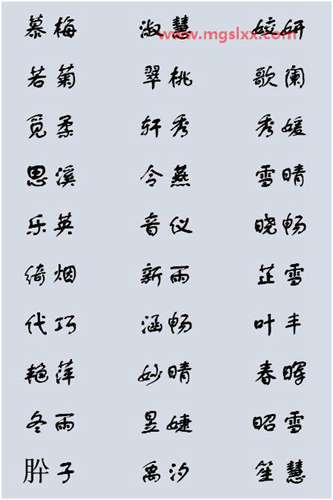 慕梅 淑慧 姣妍
www.mgslxx.com
若菊 翠桃 歌阑
觅柔 轩秀 秀媛
思溪 令燕 雪晴
乐英 音仪 晓畅
绮烟 新雨 芷雪
代巧 涵畅 叶丰
艳萍 妙晴 春晖
冬雨 昱婕 昭雪
胪子 禹汐 笙慧